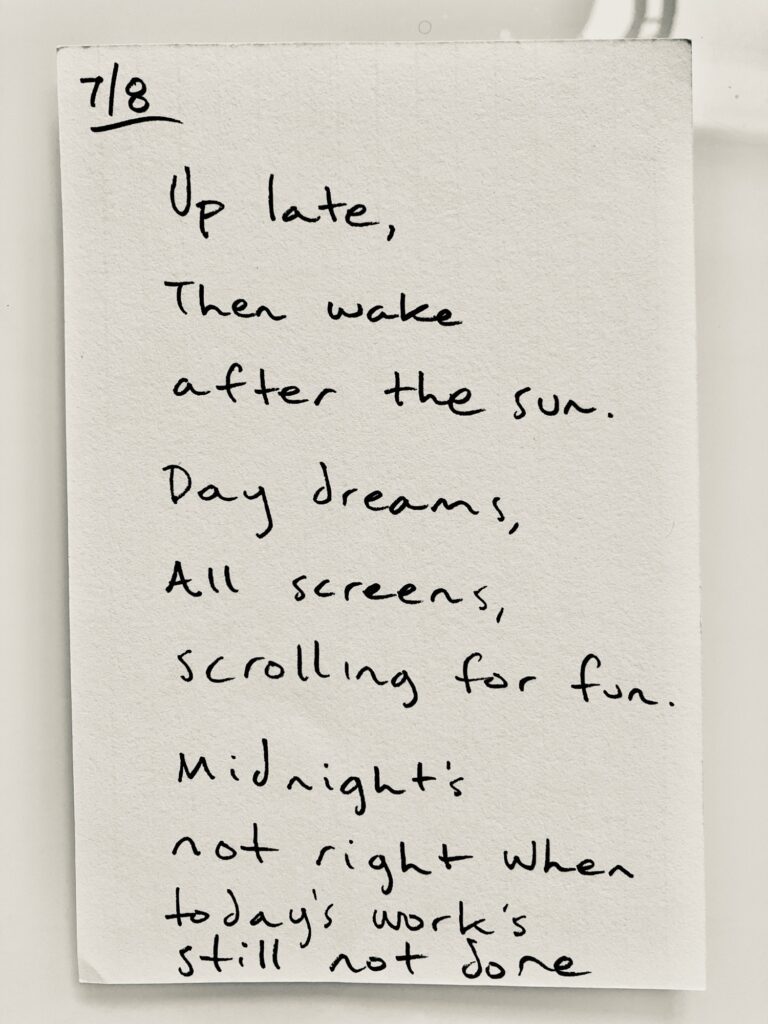 7/8
Up late,
Then wake
after the sun.
Day dreams,
All screens,
scrolling for fun.
Midnight's
not right when
today's work's
still not done